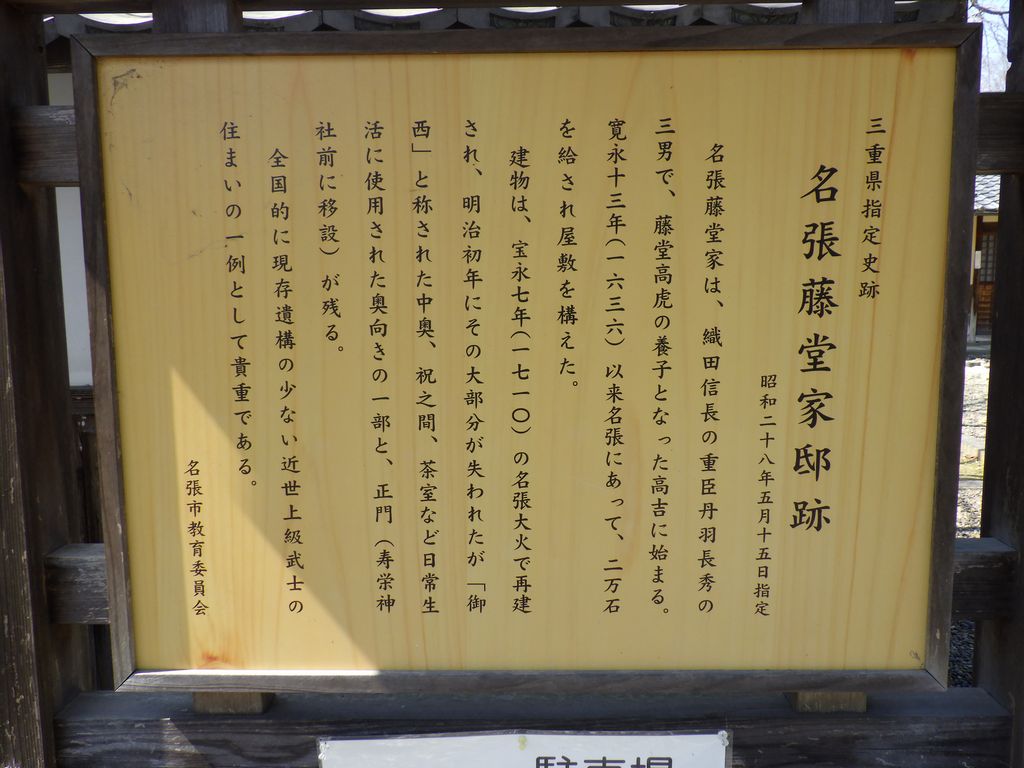 三重県指定史跡
名張藤堂家邸跡
昭和二十八年五月十五日指定
名張藤堂家は、織田信長の重臣丹羽長秀の
三男で、藤堂高虎の養子となった高吉に始まる。
寛永十三年(一六三六)以来名張にあって、二万石
を給され屋敷を構えた。
建物は、宝永七年(一七一〇)の名張大火で再建
され、明治初年にその大部分が失われたが「御
西」と称された中奥、祝之間、茶室など日常生
活に使用された奥向きの一部と、正門(寿栄神
社前に移設)が残る。
全国的に現存遺構の少ない近世上級武士の
住まいの一例として貴重である。
名張市教育委員会
駐車場